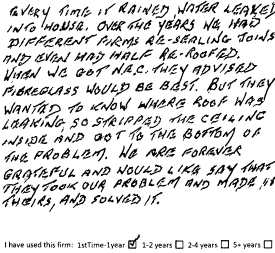 EVERY TIME IT RAINED WATER LEAKED
INTO HOUSE. OVER THE YEARS WE HAD
DIFFERENT FIRMS RE-SEALING JOINS
AND EVEN HAD HALF RE-ROOFED.
WHEN WE GOT N.F.C. THEY ADVISED
FIBREGLASS WOULD BE BEST. BUT THEY
WANTED TO KNOW WHERE ROOF WAS
LEAKING, SO STRIPPED THE CEILING
INSIDE AND GOT TO THE BOTTOM OF
THE PROBLEM. WE ARE FOREVER
GRATEFUL AND WOULD LIKE SAY THAT
THEY TOOK OUR PROBLEM AND MADE IT
THEIRS, AND SOLVED IT.
I have used this firm: 1stTime-1year ☑ 1-2 years ☐ 2-4 years ☐ 5+ years ☐